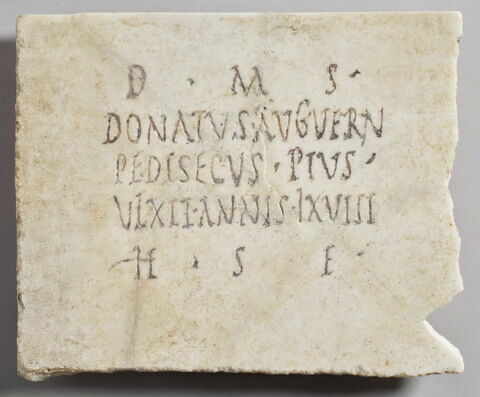 D · M S ·
DONATVS·AVG VERN
PEDISECVS · PIVS ·
VIXIT·ANNIS·LXVIII
H · S E ·